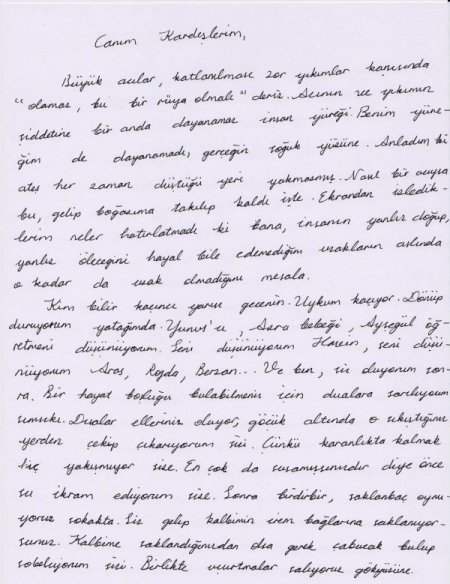 Canım Kardeşlerim,
Büyük acılar, katlanılması zor yıkımlar karşısında
"olamaz, bu bir rüya olmalı" deriz. Acının ve yıkımın
şiddetine bir anda dayanamaz insan yüreği. Benim yüre-
ğim de dayanamadı, gerçeğin soğuk yüzüne. Anladım ki
ateş her zaman düştüğü yeri yakmazmış. Nasıl bir acıysa
bu, gelip boğazıma takılıp kaldı işte. Ekrandan izledik-
lerim neler hatırlatmadı ki bana, insanın yanlız doğup,
yanlız öleceğini hayal bile edemediğim uzakların aslında
o kadar da uzak olmadığını mesala.
Kim bilir kaçıncı yarısı gecenin. Uykum kaçıyor. Dönüp
duruyorum yatağımda. Yunus'u, Azra bebeği, Ayşegül öğ-
retmeni düşünüyorum. Seni düşünüyorum Hüsein, seni düşü-
nüyorum Aras, Rojda, Berzan... Ve ben, siz oluyorum son-
ra. Bir hayat boşluğu bulabilmeniz için dualara sarılıyorum
sımsıkı. Dualar elleriniz oluyor, göçük altında o sıkıştığınız
yerden çekip çıkarıyorum sizi. Çünkü karanlıkta kalmak
hiç yakışmıyor size. En çok da susamışsınızdır diye önce
su ikram ediyorum size. Sonra birdirbir, saklanbaç oynu-
yoruz sokakta. Siz gelip kalbimin irem bağlarına saklanıyor-
sunuz. Kalbime saklandığınızdan olsa gerek çabucak bulup
sobeliyorum sizi. Birlikte uçurtmalar salıyoruz gökyüzüne.